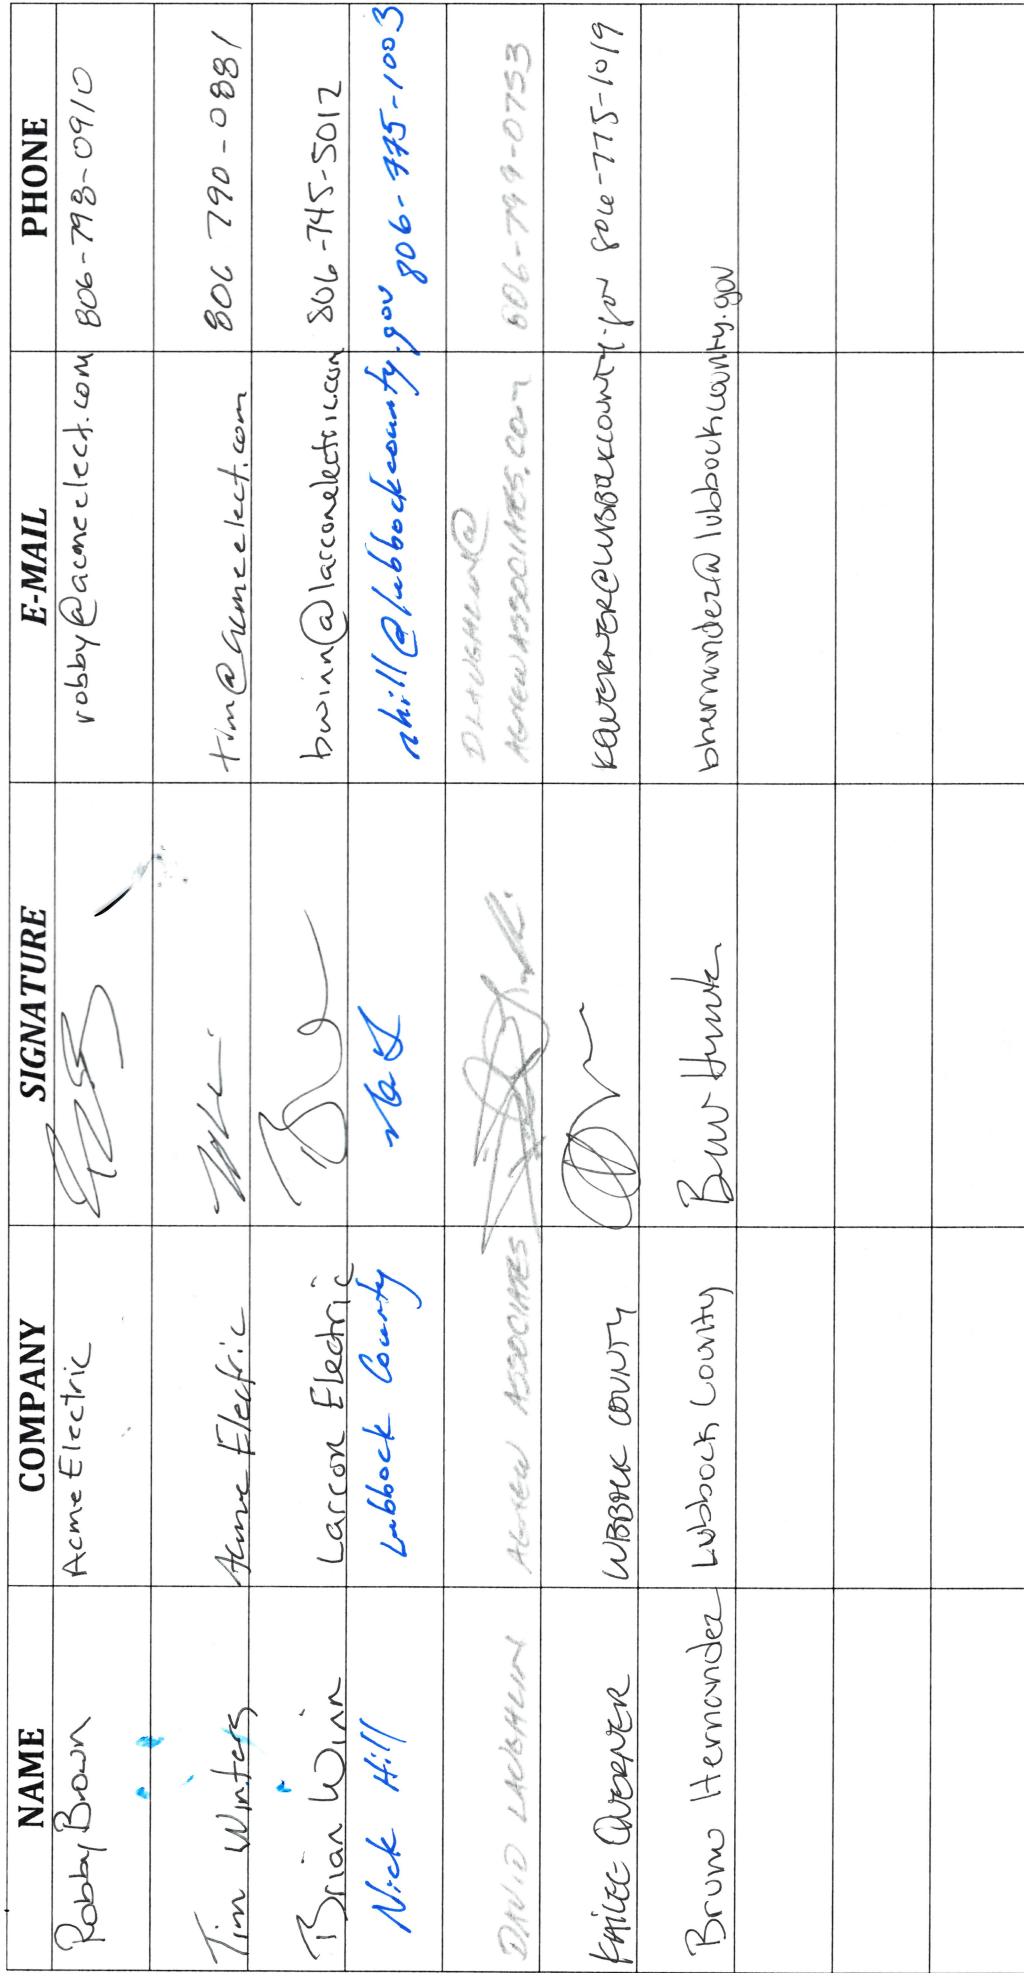 NAME COMPANY SIGNATURE E-MAIL PHONE
Robby Brown Acme Electric robby@acmeelect.com 806-798-0910
Tim Winters Acme Electric tim@acmeelect.com 806 790-0881
Brian Winn Larcon Electric bwinn@larconelectric.com 806-745-5012
Nick Hill Lubbock County nhill@lubbockcounty.gov 806-775-1003
DAVID LAUGHLIN AGNEW ASSOCIATES DLAUGHLIN@
AGNEWASSOCIATES.COM 806-799-0753
KAILEE LUBBOCK COUNTY 806-775-1019
Bruno Hernandez Lubbock County bhernandez@lubbockcounty.gov